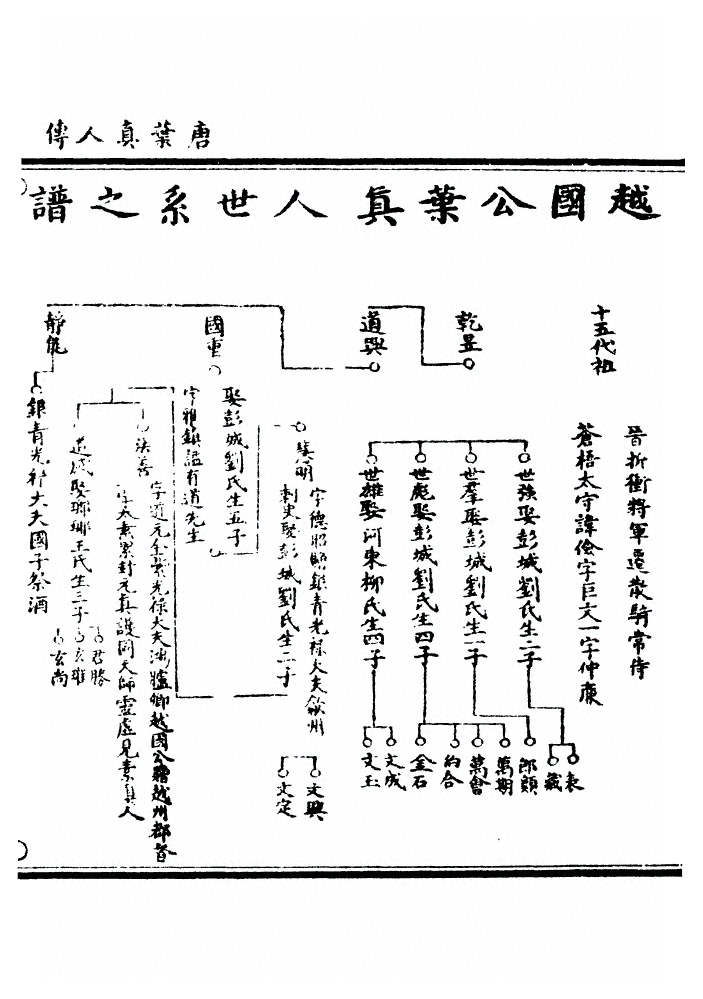 唐葉真人傳
越國公葉真人世系之譜
十五代祖
晉折衝將軍遷散騎常侍
蒼梧太守諱儉字巨文一字仲康
乾昱
道興
世強娶彭城劉氏生二子
世羣娶彭城劉氏生一子
世彪娶彭城劉氏生四子
世雄娶河東柳氏生四子
表
藏
郎頭
萬期
萬會
約合
金石
文成
文玉
國重
娶彭城劉氏生五子
字雅鎮謚有道先生
慧明
字德昭贈銀青光祿大夫歙州
刺史娶彭城劉氏生二子
文興
文定
法善
字道元金紫光祿大夫鴻臚卿越國公贈越州都督
字太素累封元真護國天師靈虛見素真人
娶瑯琊王氏生三子
君勝
玄雄
玄尚
靜能
銀青光祿大夫國子祭酒